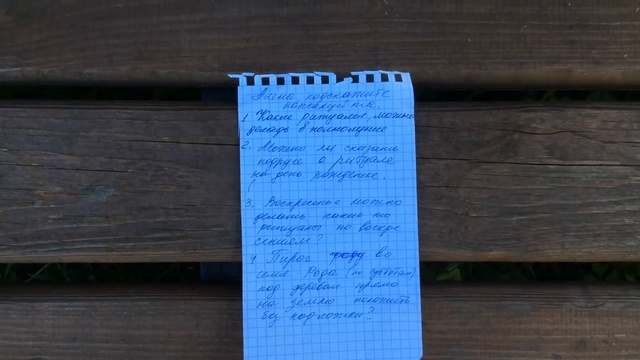 Алена подскажите
пожалуйста.
1. Какие ритуалы можно
делать в полнолуние
2. Можно ли сказать
подруге о ритуале
на день рождение.
3. Воскресенье можно
делать какие то
ритуалы по воскре
сением?
4 Пирог во
имя Рода (по субботам)
под деревом прямо
на землю положить
без подложки?